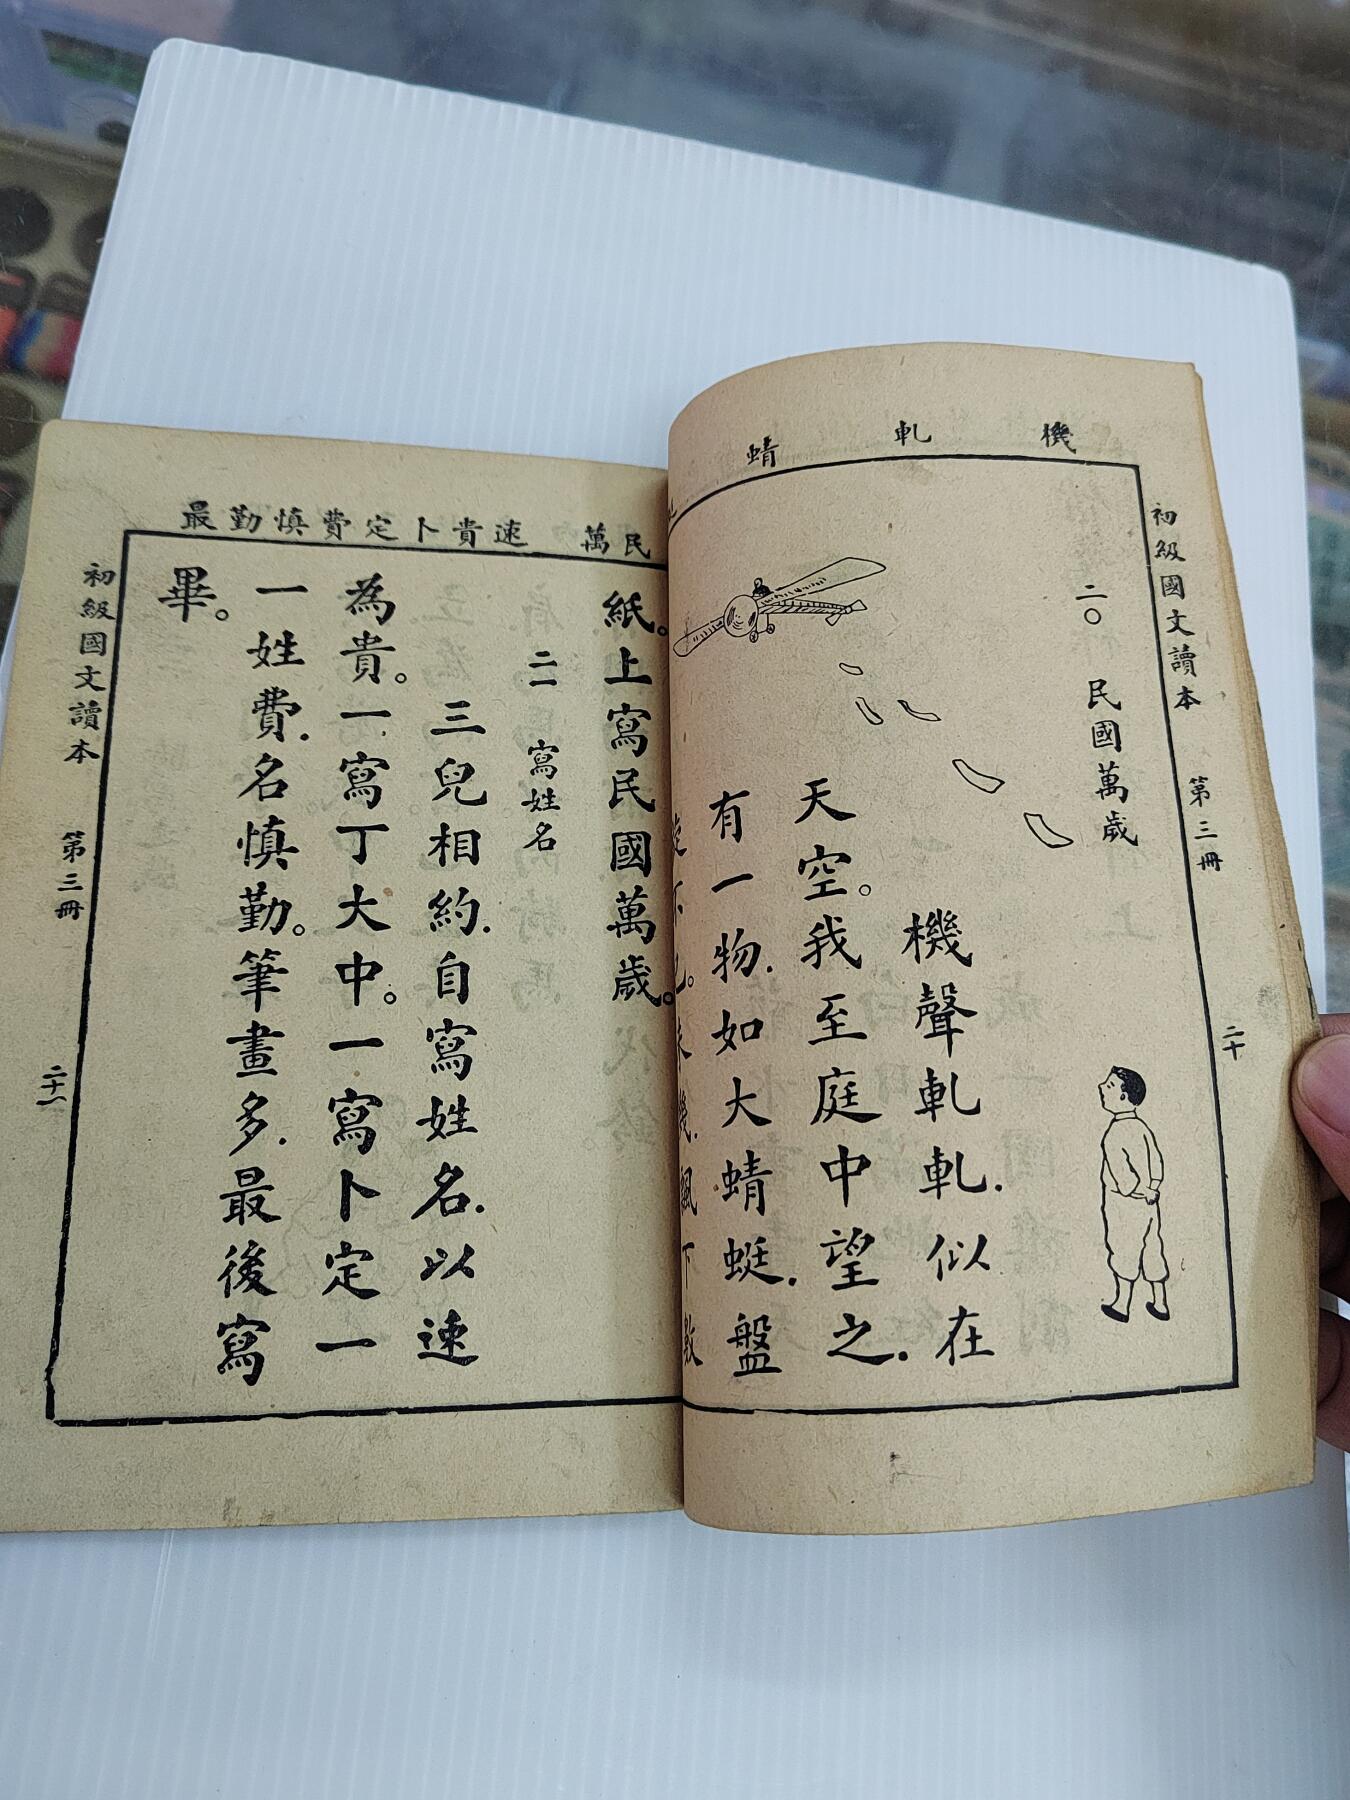 初級國文讀本 第三冊 二十
機 軋 蜻
二〇 民國萬歲
機聲軋軋.似在
天空。我至庭中望之.
有一物.如大蜻蜓.盤
下 飄下數
民萬
紙。上寫民國萬歲。
速貴卜定費慎勤最
二一 寫姓名
三兒相約.自寫姓名.以速
為貴。一寫丁大中。一寫卜定一
一姓費.名慎勤。筆畫多.最後寫
畢。
初級國文讀本 第三冊 二十一